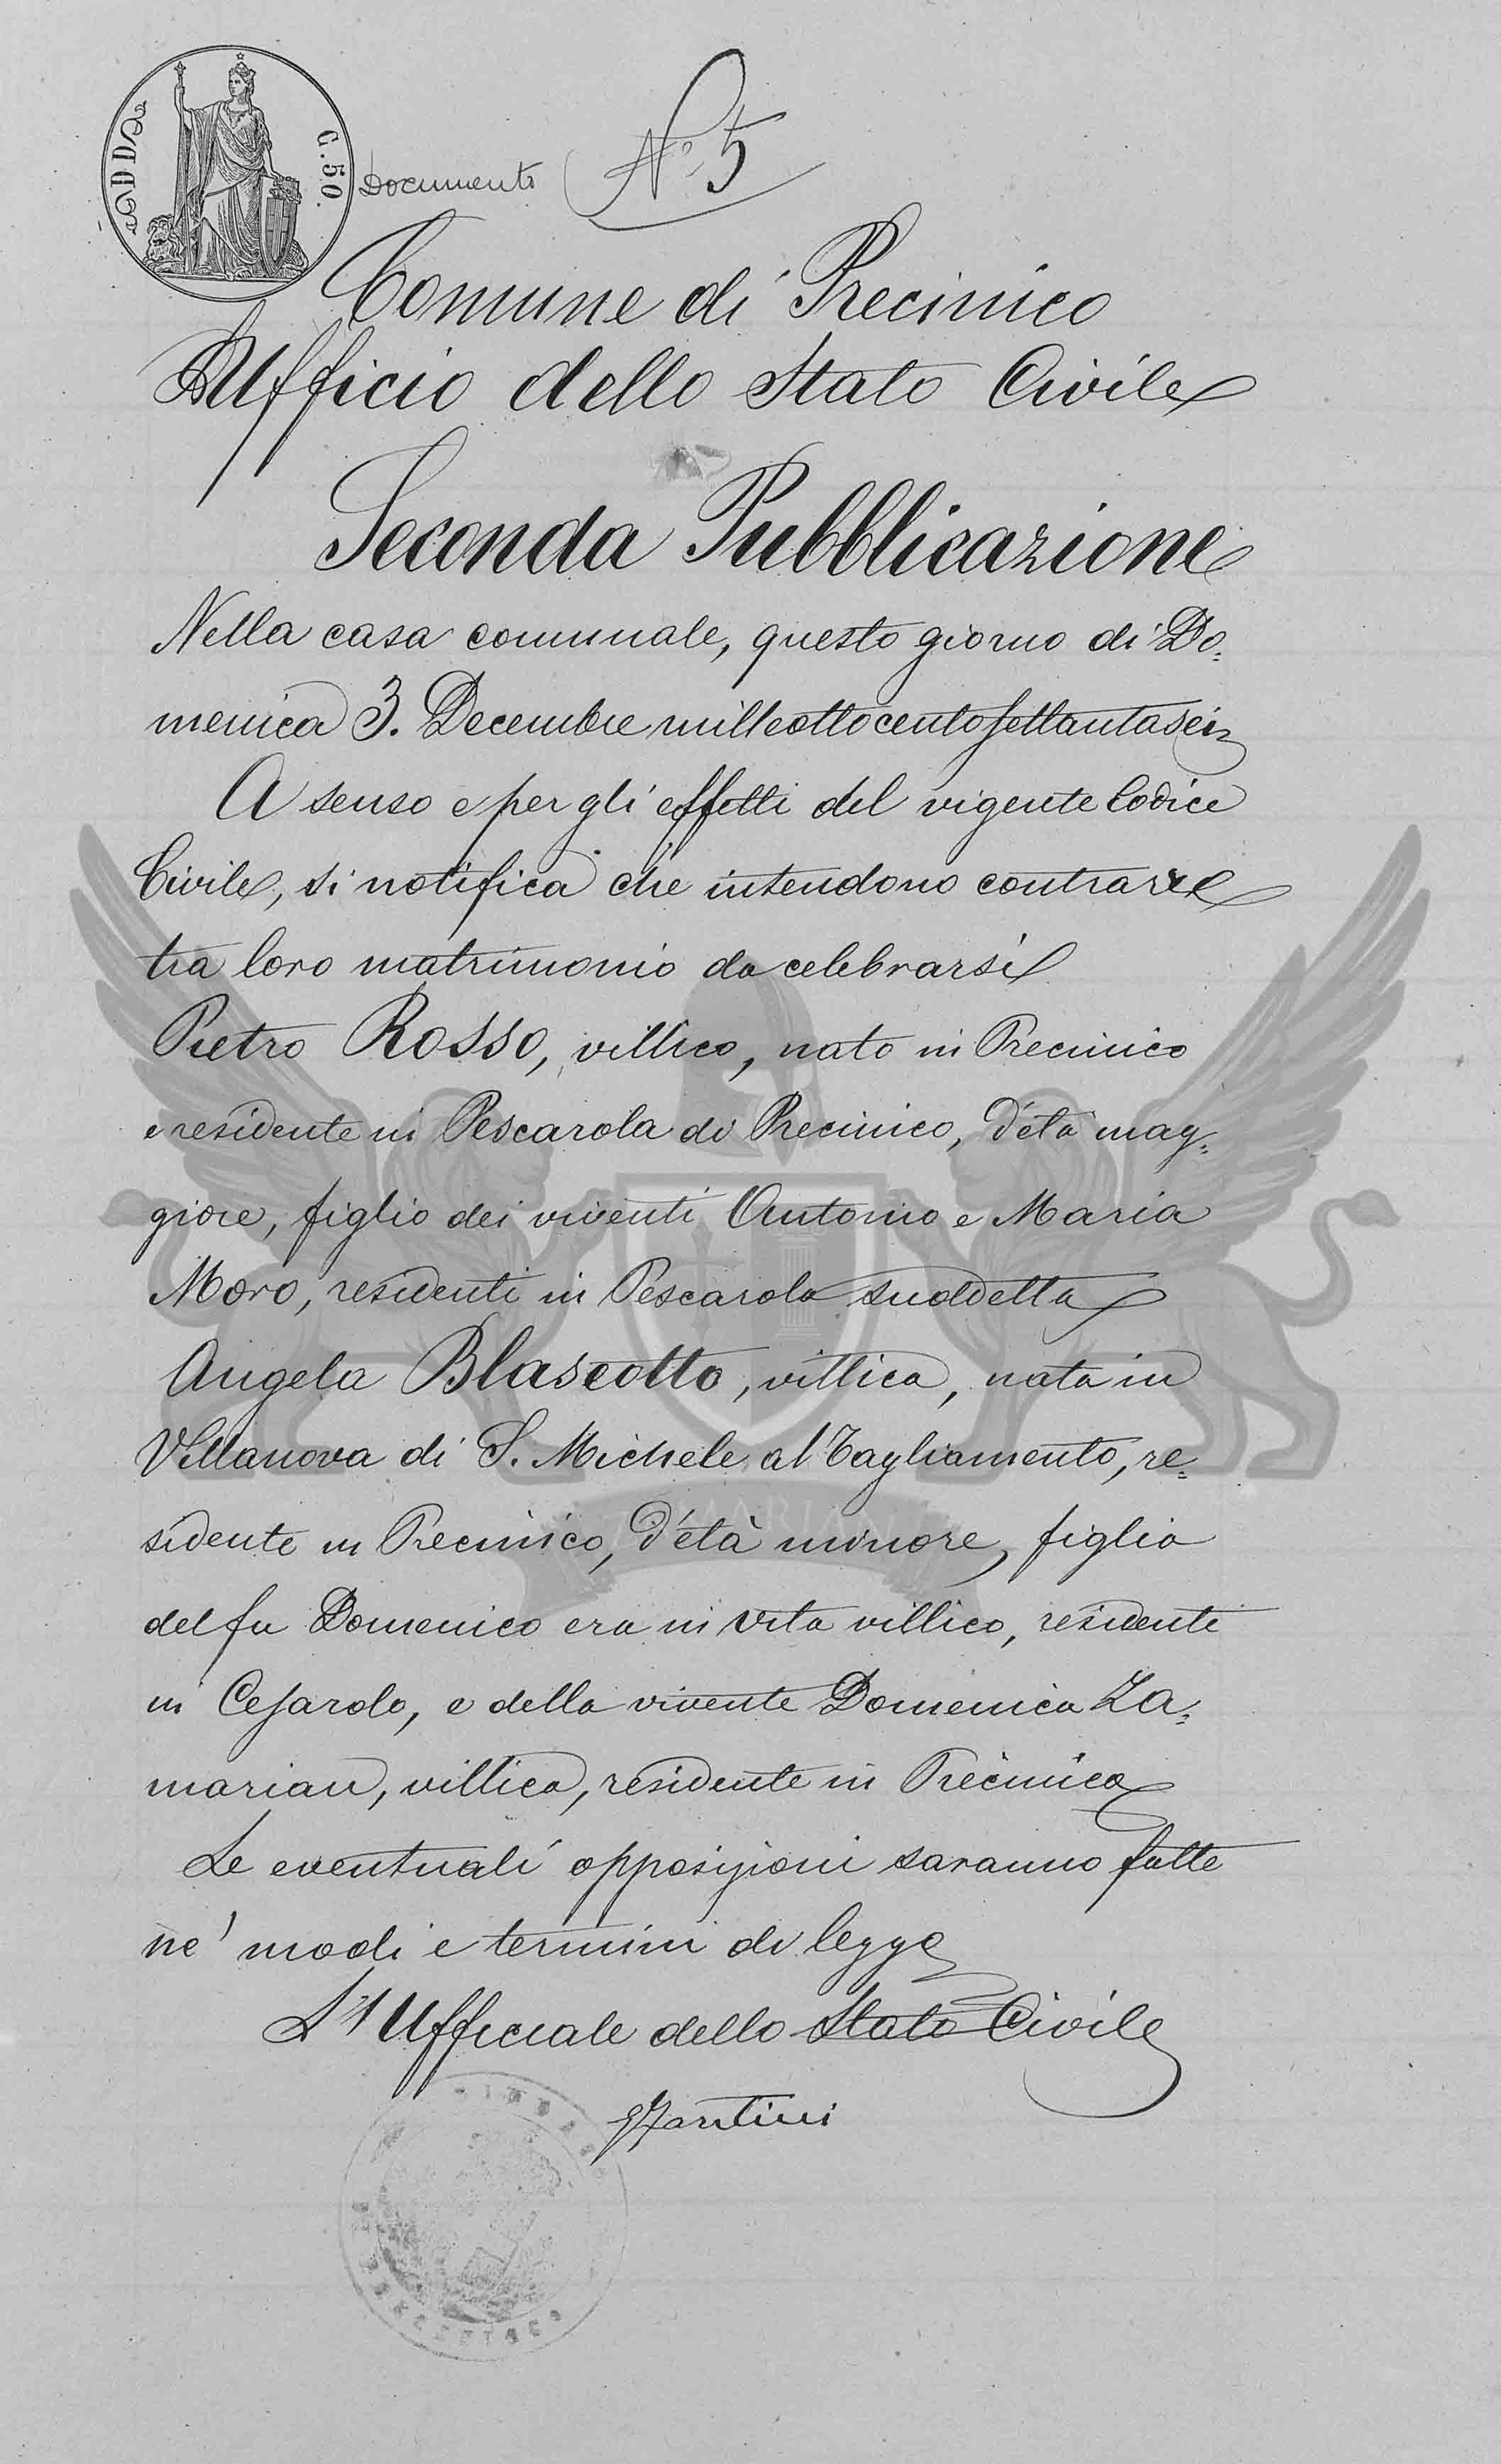 C. 50.
Documento N.° 5
Comune di Precinico
Ufficio dello Stato Civile
Seconda Pubblicazione
Nella casa comunale, questo giorno di Do=
menica 3. Decembre milleottocentosettantasei
A senso e per gli effetti del vigente Codice
Civile, si notifica che intendono contrarre
tra loro matrimonio da celebrarsi
Pietro Rosso, villico, nato in Precinico
e residente in Pescarola di Precinico, d'età mag=
giore, figlio dei viventi Antonio e Maria
Moro, residenti in Pescarola suddetta
Angela Blaseotto, villica, nata in
Villanova di S. Michele al Tagliamento, re=
sidente in Precinico, d'età minore, figlia
del fu Domenico era in vita villico, residente
in Cesarolo, e della vivente Domenica Za=
marian, villica, residente in Precinico
Le eventuali opposizioni saranno fatte
ne' modi e termini di legge
L'Ufficiale dello Stato Civile